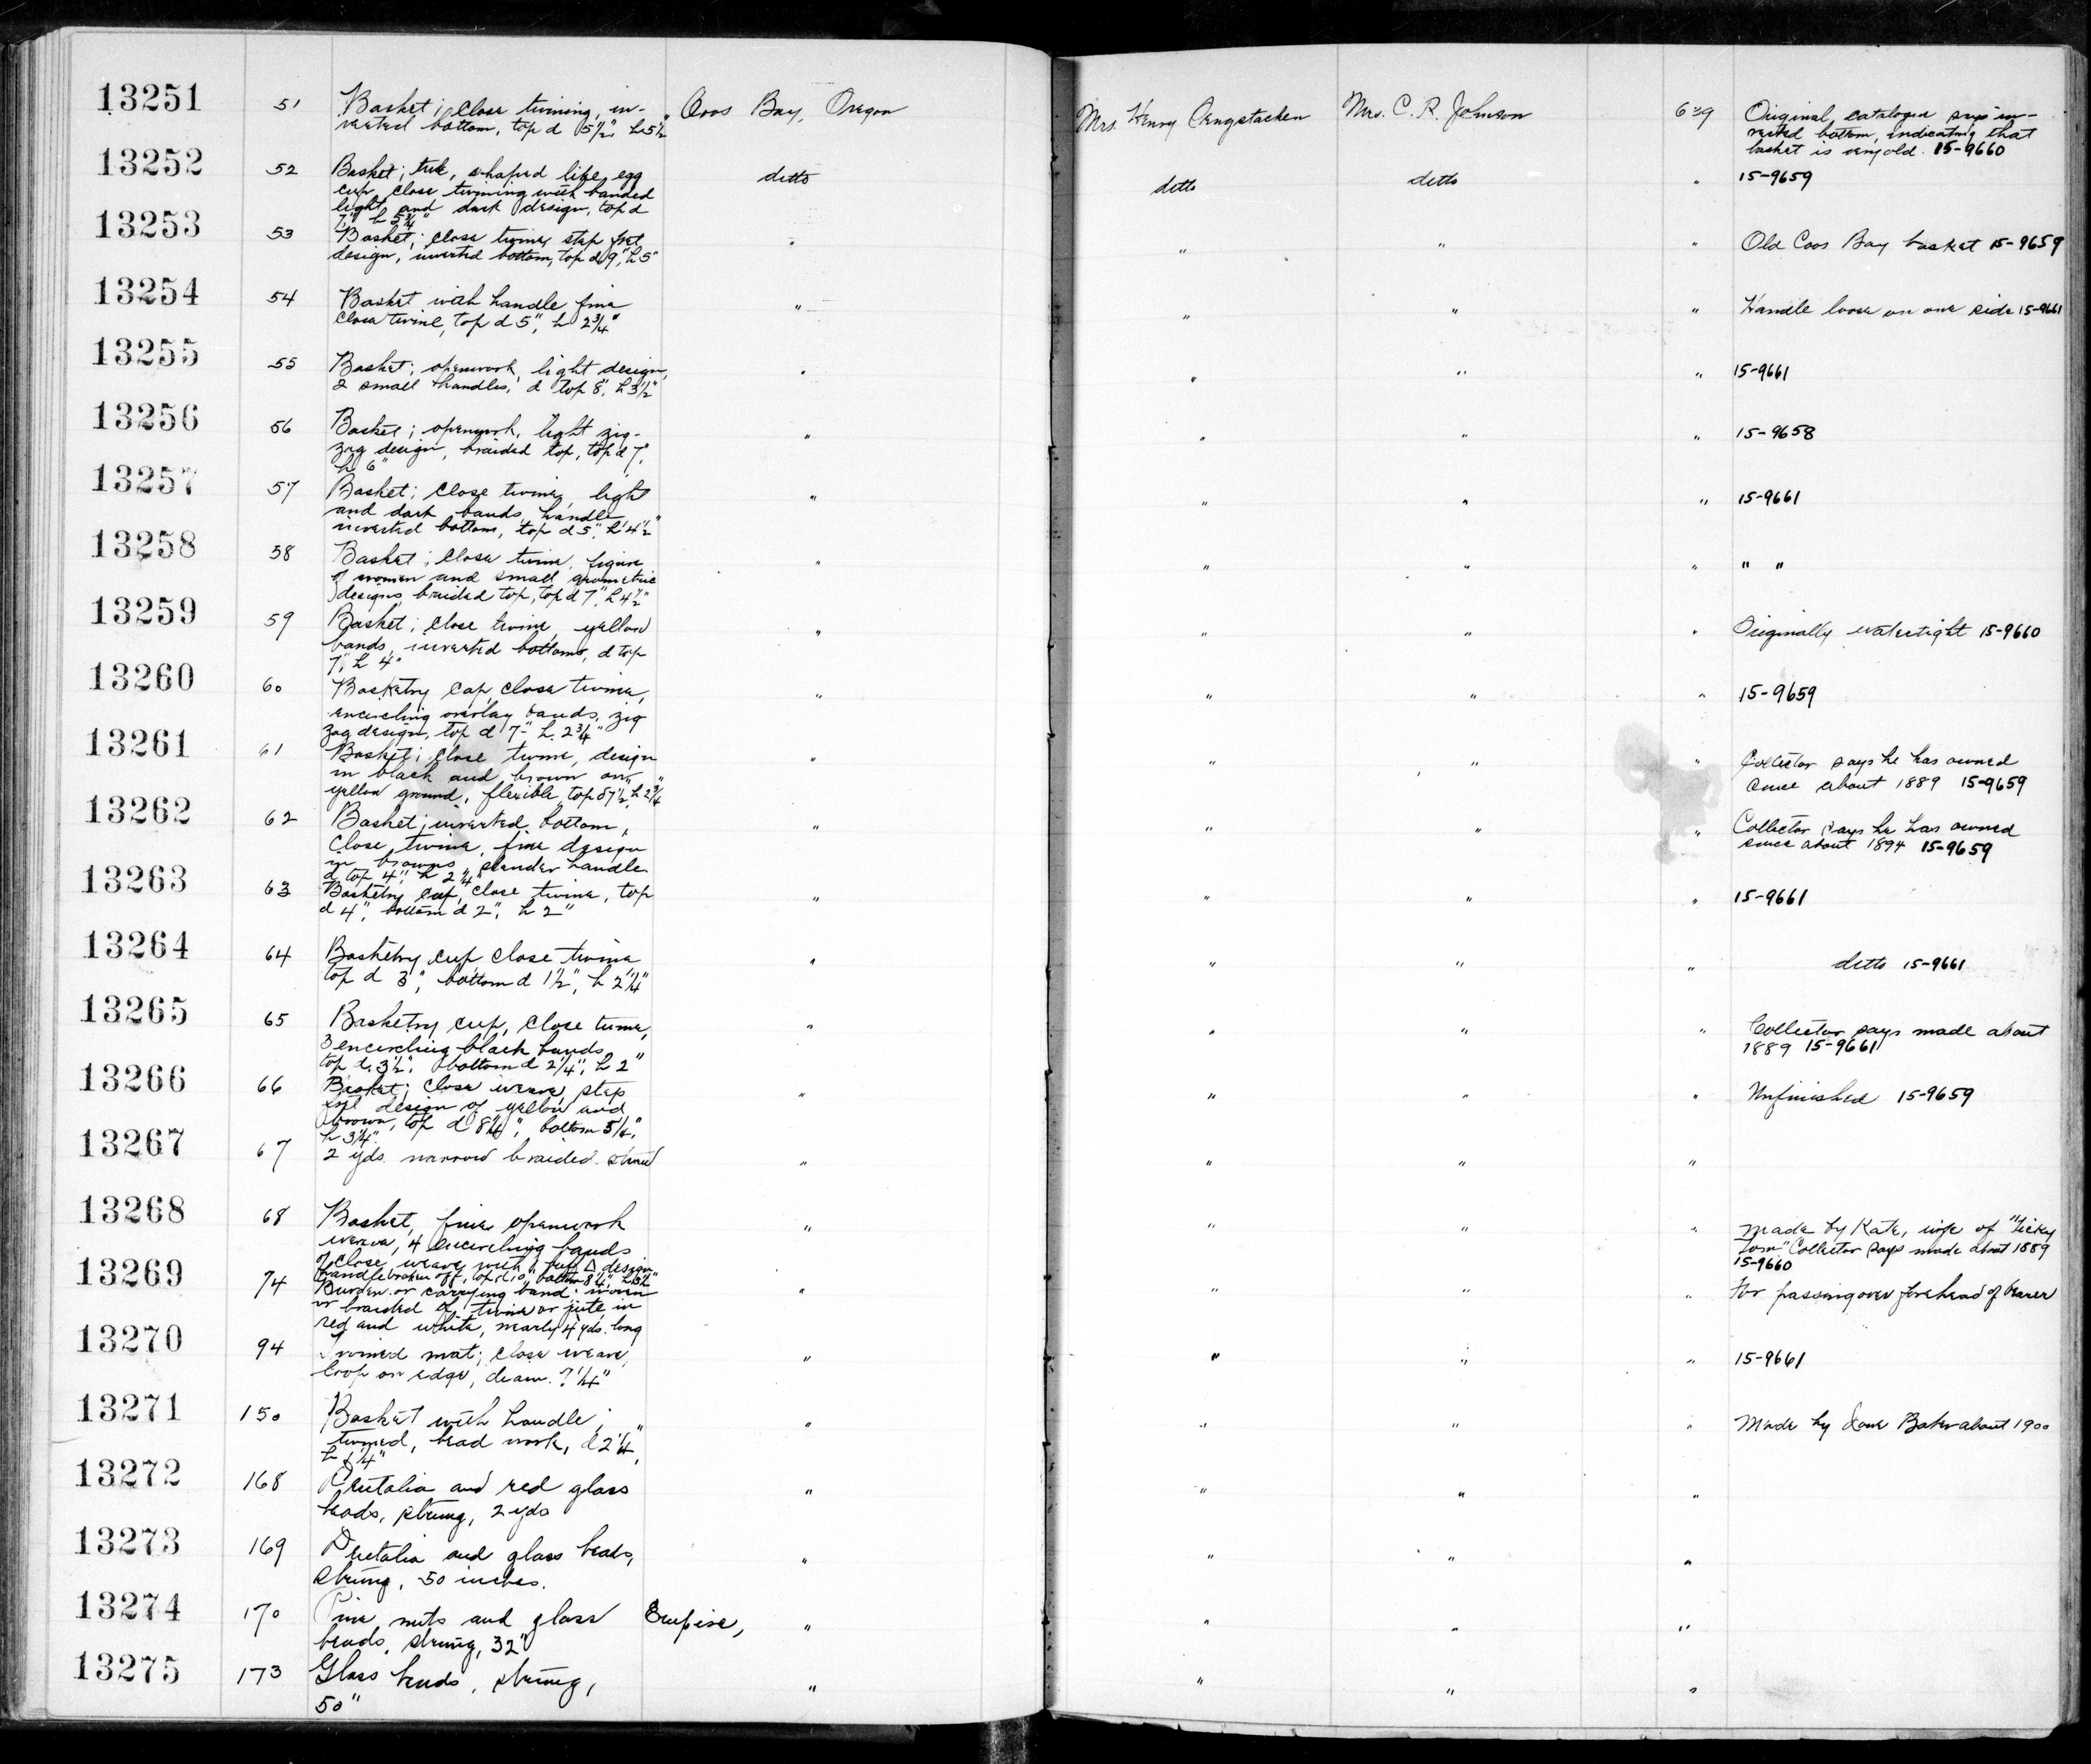 13251 51 Basket; close twining, in- Coos Bay, Oregon Mrs. Henry Sengstacken Mrs. C. R. Johnson 639 Original catalogue says in-
verted bottom, top d 5½", h 5½" verted bottom, indicating that
basket is very old. 15-9660
13252 52 Basket; shaped like egg ditto ditto ditto " 15-9659
cup, close twining with banded
light and dark design, top d
7" h 5¾"
13253 53 Basket; close twine, step fret " " " " Old Coos Bay basket 15-9659
design, inverted bottom, top d 9", h 5"
13254 54 Basket with handle fine " " " " Handle loose on one side 15-9661
close twine, top d 5", h 2¾"
13255 55 Basket; openwork, light design, " " " " 15-9661
2 small handles, d top 8", h 3½"
13256 56 Basket; openwork, light zig- " " " " 15-9658
zag design, braided top, top d 7",
h 6"
13257 57 Basket; close twine, light " " " " 15-9661
and dark bands, handle
inverted bottom, top d 5", h 4½"
13258 58 Basket; close twine, figure " " " " " "
of women and small geometric
designs, braided top, top d 7", h 4½"
13259 59 Basket; close twine, yellow " " " " Originally watertight 15-9660
bands, inverted bottoms, d top
7", h 4"
13260 60 Basketry cap, close twine, " " " " 15-9659
encircling overlay bands, zig
zag design, top d 7" h. 2¾"
13261 61 Basket; close twine, design " " " " Collector says he has owned
in black and brown on since about 1889 15-9659
yellow ground, flexible, top d 7½", h 2¾"
13262 62 Basket; inverted bottom, " " " " Collector says he has owned
close twine, fine design since about 1894 15-9659
in browns, slender handle
d top 4", h 2¼"
13263 63 Basketry cup, close twine, top " " " " 15-9661
d 4", bottom d 2", h 2"
13264 64 Basketry cup close twine " " " " ditto 15-9661
top d 3", bottom d 1½", h 2¼"
13265 65 Basketry cup, close twine, " " " " Collector says made about
3 encircling black bands, 1889 15-9661
top d. 3½", bottom d 2¼", h 2"
13266 66 Basket; close weave, step " " " " Unfinished 15-9659
design of yellow and
brown, top d 8¼", bottom 5¼",
h 3¼"
13267 67 2 yds. narrow braided " " " "
13268 68 Basket, fine openwork " " " " Made by Kate, wife of
weave, 4 encircling bands Tom" Collector says made about 1889
of close weave with Δ design 15-9660
handle broken off, top d 10", bottom 8¼", h 3½"
13269 74 Burden or carrying band; woven " " " " For passing over forehead of bearer
or braided of twine or jute in
red and white, nearly 4 yds. long
13270 94 Twined mat; close weave, " " " " 15-9661
loop on edge, diam. 7¼"
13271 150 Basket with handle; " " " " Made by Jane Baker about 1900
twined, bead work, d 2¼",
h 1¼"
13272 168 Dentalia and red glass " " " "
beads, strung, 2 yds
13273 169 Dentalia and glass beads, " " " "
strung, 50 inches.
13274 170 Pine nuts and glass Empire, " " " "
beads, strung, 32"
13275 173 Glass beads, strung, " " " "
50"